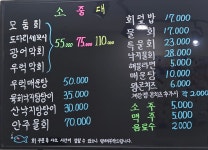 소 중 대
모둠회
도다리세꼬시
광어막회
우럭막회
55.000 75.000 110.000
우럭매운탕 50.000
쭈꾸미낙지탕탕이 35.000
산낙지탕탕이 30.000
안주물회 70.000
회덮밥 17.000
물회 17.000
특물회 23.000
낙지물회 28.000
해물라면
매운탕 10.000
공기밥
2.000
소주 5.000
맥주 5.000
음료수 2.000